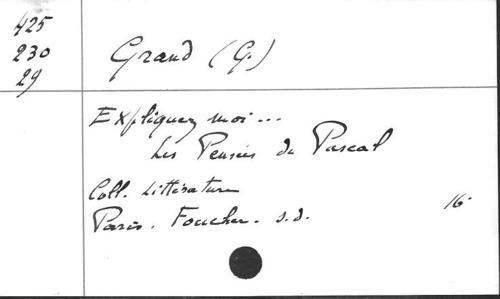 425
230
29
Grand (G.)
Expliquez moi...
Les Pensées de Pascal
Coll. Littérature
Paris. Foucher. s.d. 16.